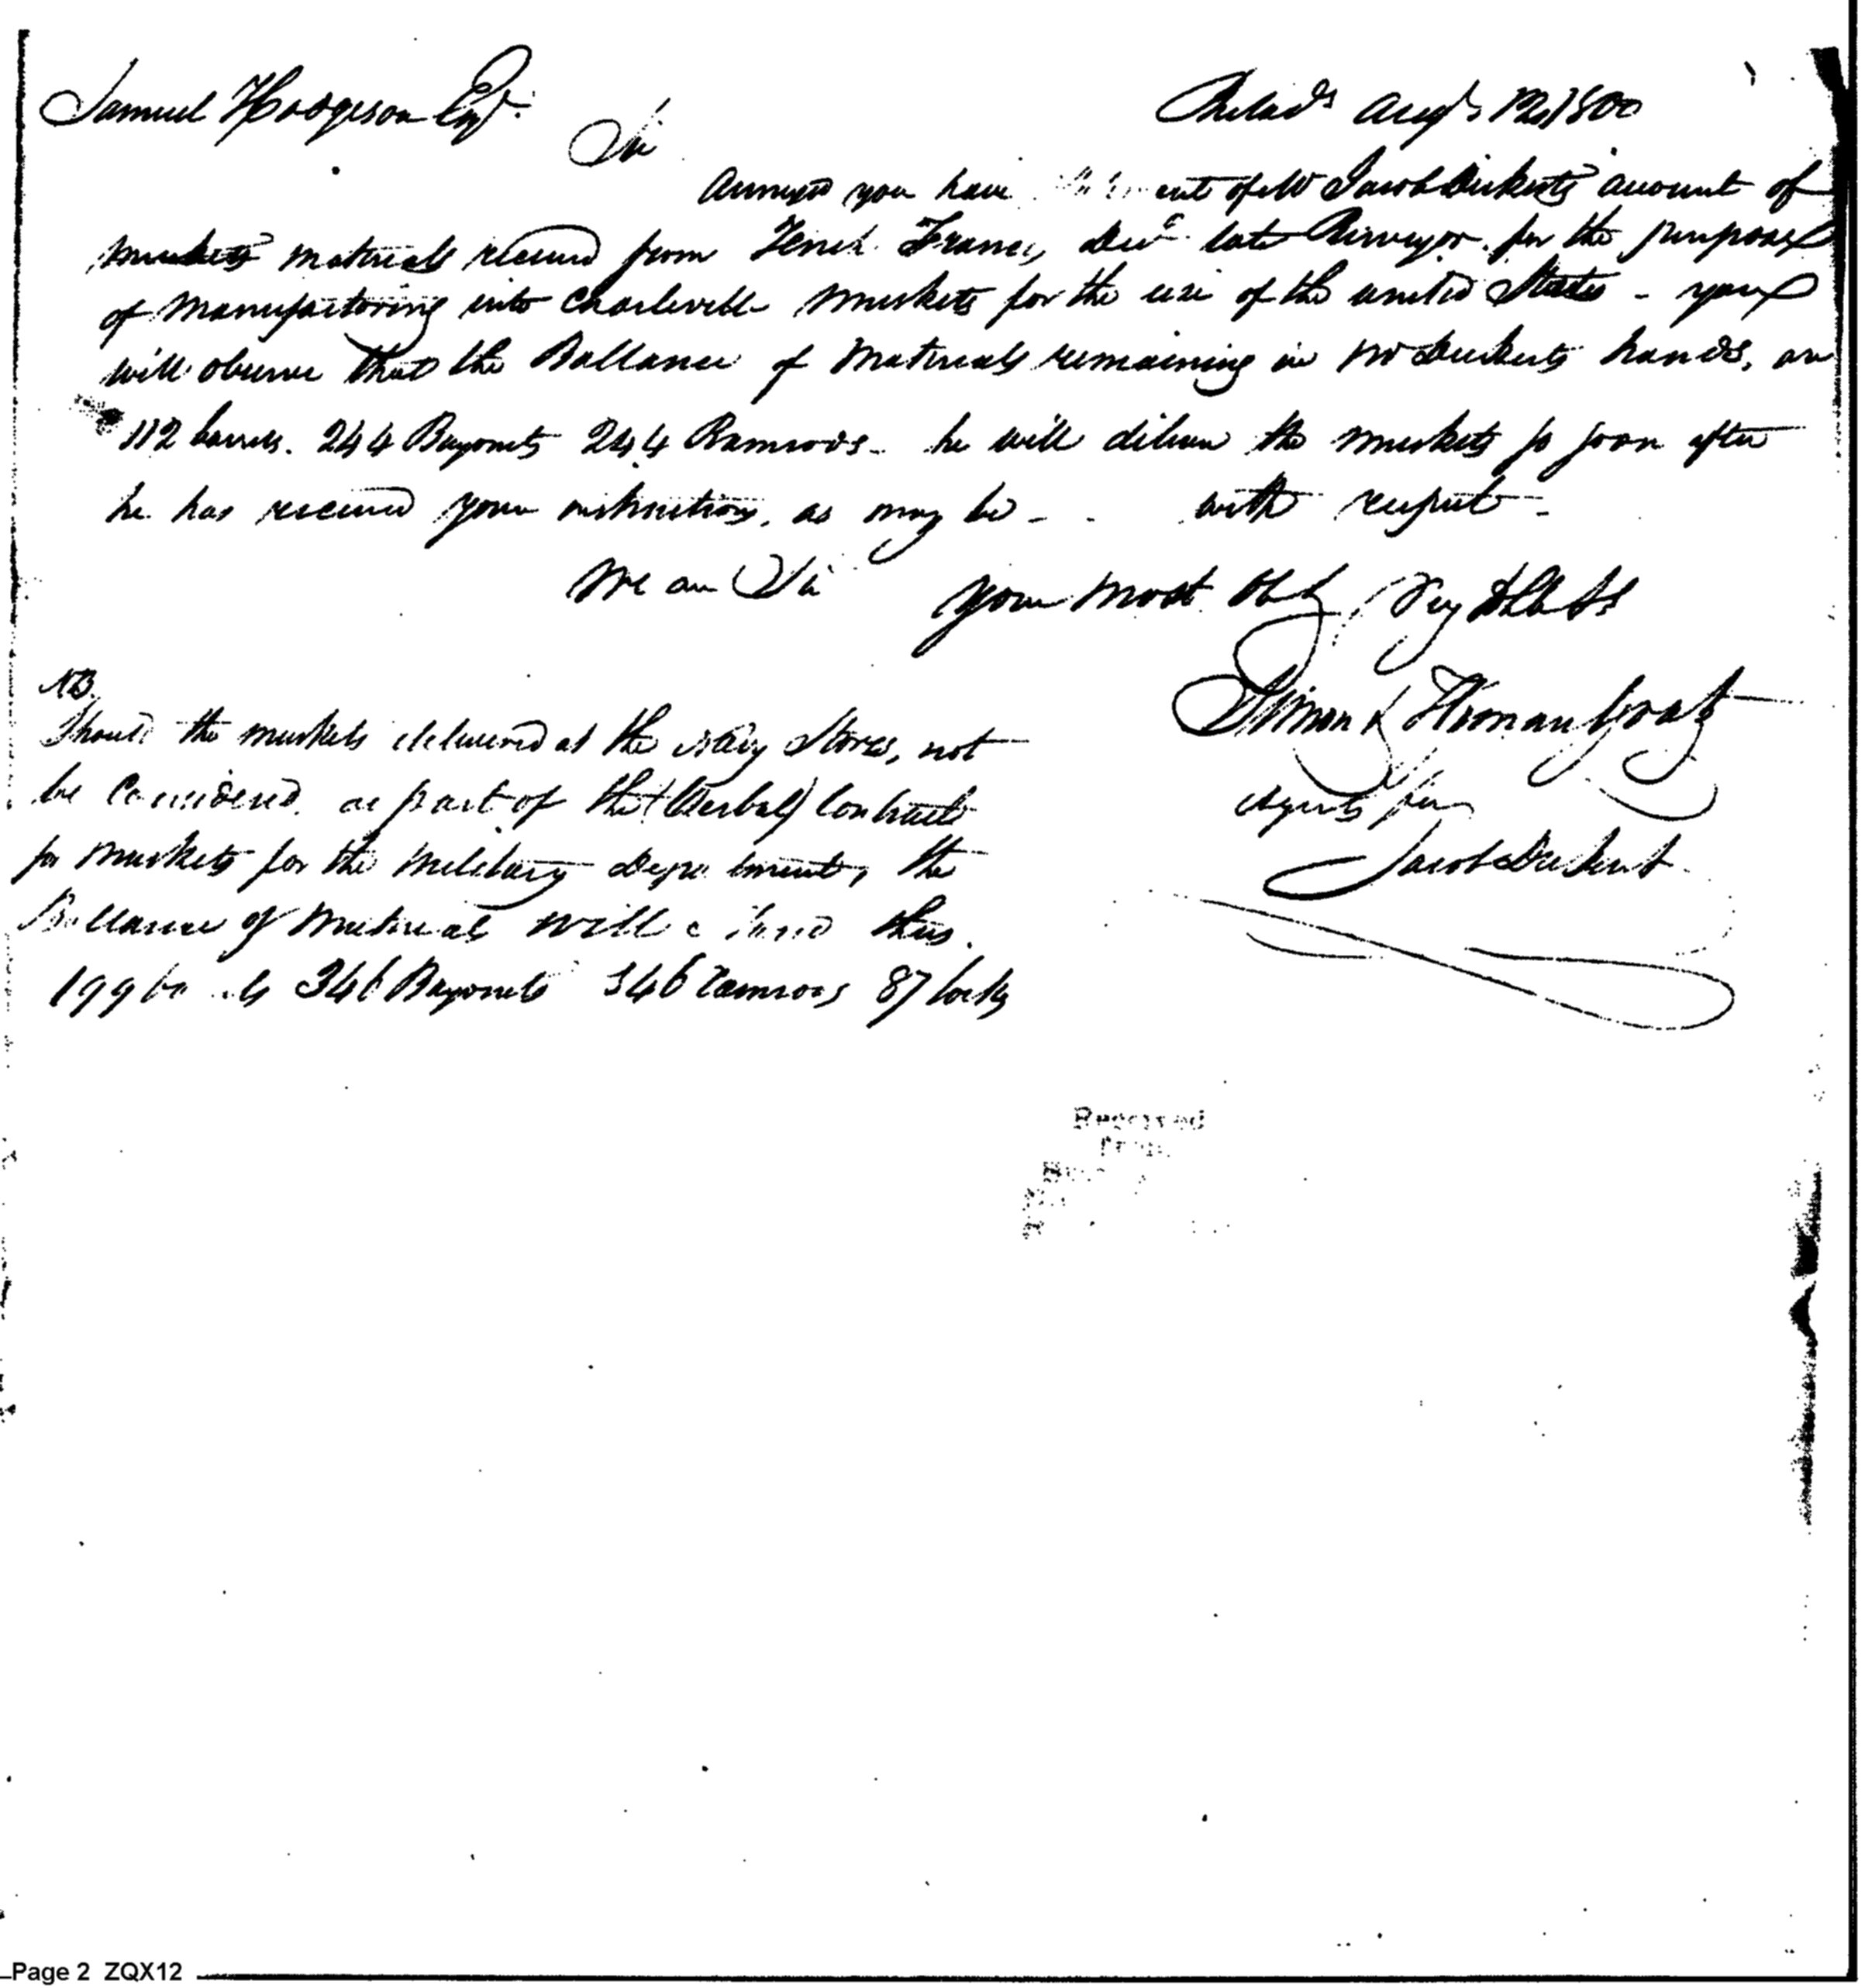 Samuel Hodgson Esqr. Philada Augt. 12th 1800
Sir
Annexed you have of Mr Jacob Dickerts account of
muskets materials received from Tench Francis, Decd late Purveyor, for the purpose
of Manufactoring into Charlevill Muskets for the use of the united States - you
will observe that the Ballance of Materials remaining in Mr Dickerts hands, are
112 barrels. 244 Bayonets 244 Ramrods - he will deliver the muskets so soon after
he has received your instructions, as may be - - with respect -
We are Sir
your most Obt Hy Sts
Simon & Hyman Gratz
NB.
Should the muskets delivered at the Navy Stores, not
be Considered as part of the (Verbal) Contract
for muskets for the Military Department, the
Ballance of Materials will stand thus.
199 barrels 346 Bayonets 346 Ramrods 87 locks
Agents for
Jacob Dickert
Received
from
Page 2 ZQX12